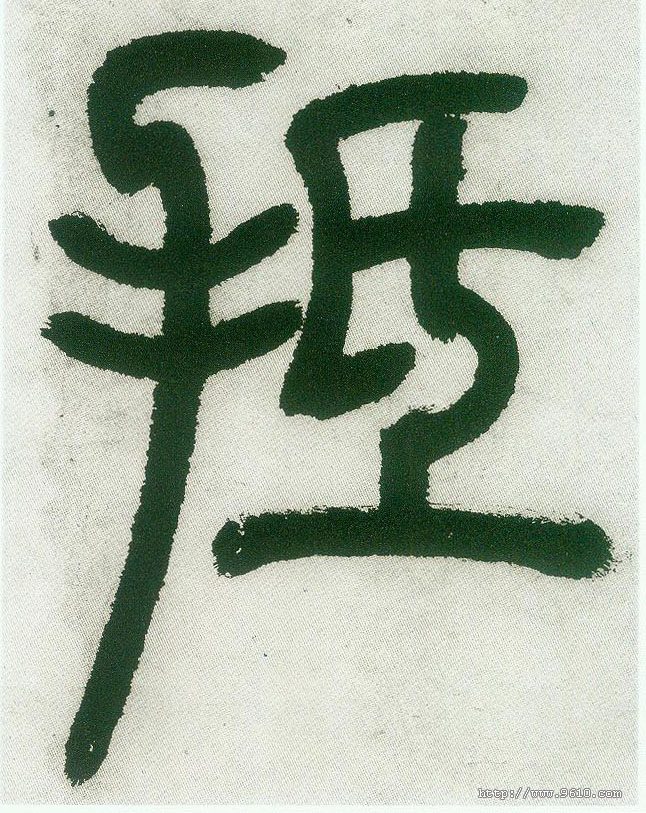 抵
http://www.9610.com